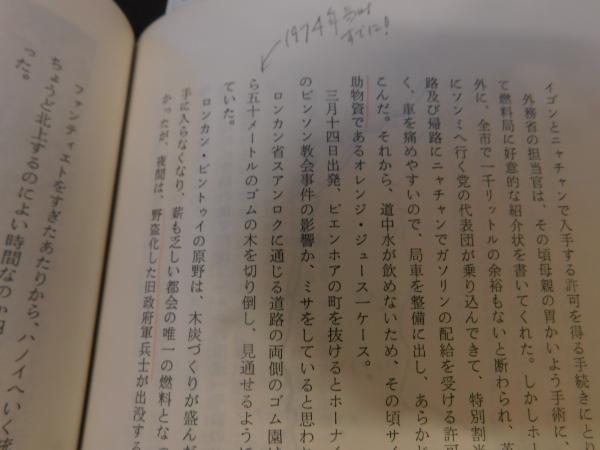 1974年当時
すでに!
イゴンとニャチャンで入手する許可を得る手続きにと
外務省の担当官は、その頃母親の胃かいよう手術に、
て燃料局に好意的な紹介状を書いてくれた。しかしホー
外に、全市で一千リットルの余裕もないと断わられ、
にソンミへ行く党の代表団が乗り込んできて、特別割
路及び帰路にニャチャンでガソリンの配給を受ける許可
く、車を痛めやすいので、局車を整備に出し、あらか
こんだ。それから、道中水が飲めないため、その頃サイ
助物資であるオレンジ・ジュース一ケース。
三月十四日出発、ビエンホアの町を抜けるとホーナイ
のビンソン教会事件の影響か、ミサをしていると思わ
ロンカン省スアンロクに通じる道路の両側のゴム園は
ら五十メートルのゴムの木を切り倒し、見通せるように
ていた。
ロンカン・ビントゥイの原野は、木炭づくりが盛んだ
手に入らなくなり、薪も乏しい都会の唯一の燃料となっ
かったが、夜間は、野盗化した旧政府軍兵士が出没する
ファンティエトをすぎたあたりから、ハノイへいく
ちょうど北上するのによい時間なのか
った。